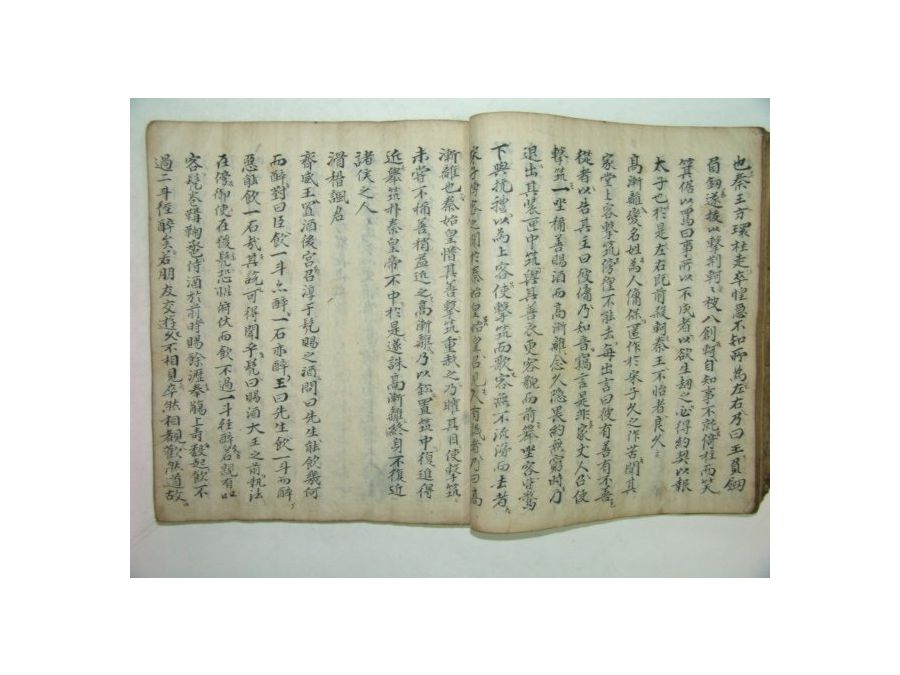 也秦王方環柱走卒惶急不知所爲左右乃曰王負劒
負劒遂拔以擊荆軻軻被八創軻自知事不就倚柱而笑
箕倨以罵曰事所以不成者以欲生劫之必得約契以報
太子也於是左右旣前殺軻秦王不怡者良久
高漸離變名姓爲人傭保匿作於宋子久之作苦聞其
家堂上客擊筑彷徨不能去每出言曰彼有善有不善
從者以告其主曰彼傭乃知音竊言是非家丈人召使
擊筑一坐稱善賜酒而高漸離念久隱畏約無窮時乃
退出其裝匣中筑與其善衣更容貌而前擧坐客皆驚
下與抗禮以爲上客使擊筑而歌客無不流涕而去者
宋子傳客之聞於秦始皇始皇召見人有識者乃曰高
漸離也秦始皇惜其善擊筑重赦之乃矐其目使擊筑
未嘗不稱善稍益近之高漸離乃以鈆置筑中復進得
近擧筑朴秦皇帝不中於是遂誅高漸離終身不復近
諸侯之人
滑稽諷名
齊威王置酒後宮召淳于髡賜之酒問曰先生能飮幾何
而醉對曰臣飮一斗亦醉一石亦醉王曰先生飮一斗而醉
惡能飮一石哉其說可得聞乎髡曰賜酒大王之前執法
在傍御使在後髡恐懼俯伏而飮不過一斗徑醉若親有
客髡帣鞲鞠䠆侍酒於前時賜餘瀝奉觴上壽數起飮不
過二斗徑醉矣若朋友交遊久不相見卒然相覩歡然道故